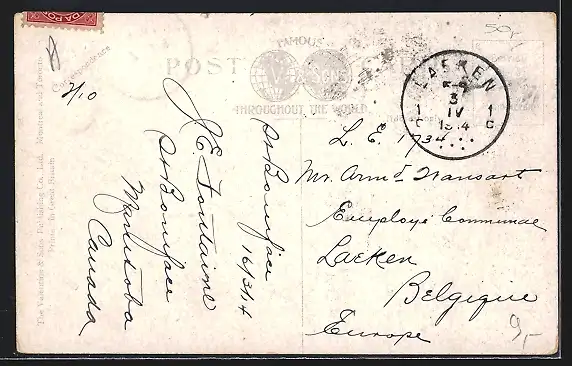 50,-
FAMOUS
POST
THROUGHOUT THE WORLD
Correspondence
The Valentine & Sons Publishing Co., Ltd., Montreal and Toronto
Printed in Great Britain
2/10
J. E. Fontaine
St Boniface
Manitoba
Canada
St Boniface
16/3/14
LAEKEN
3
IV
1914
1 C
1 C
L. E. 1734
Mr. Arm d Transart
Employé Communal
Laeken
Belgique
Europe
9,-